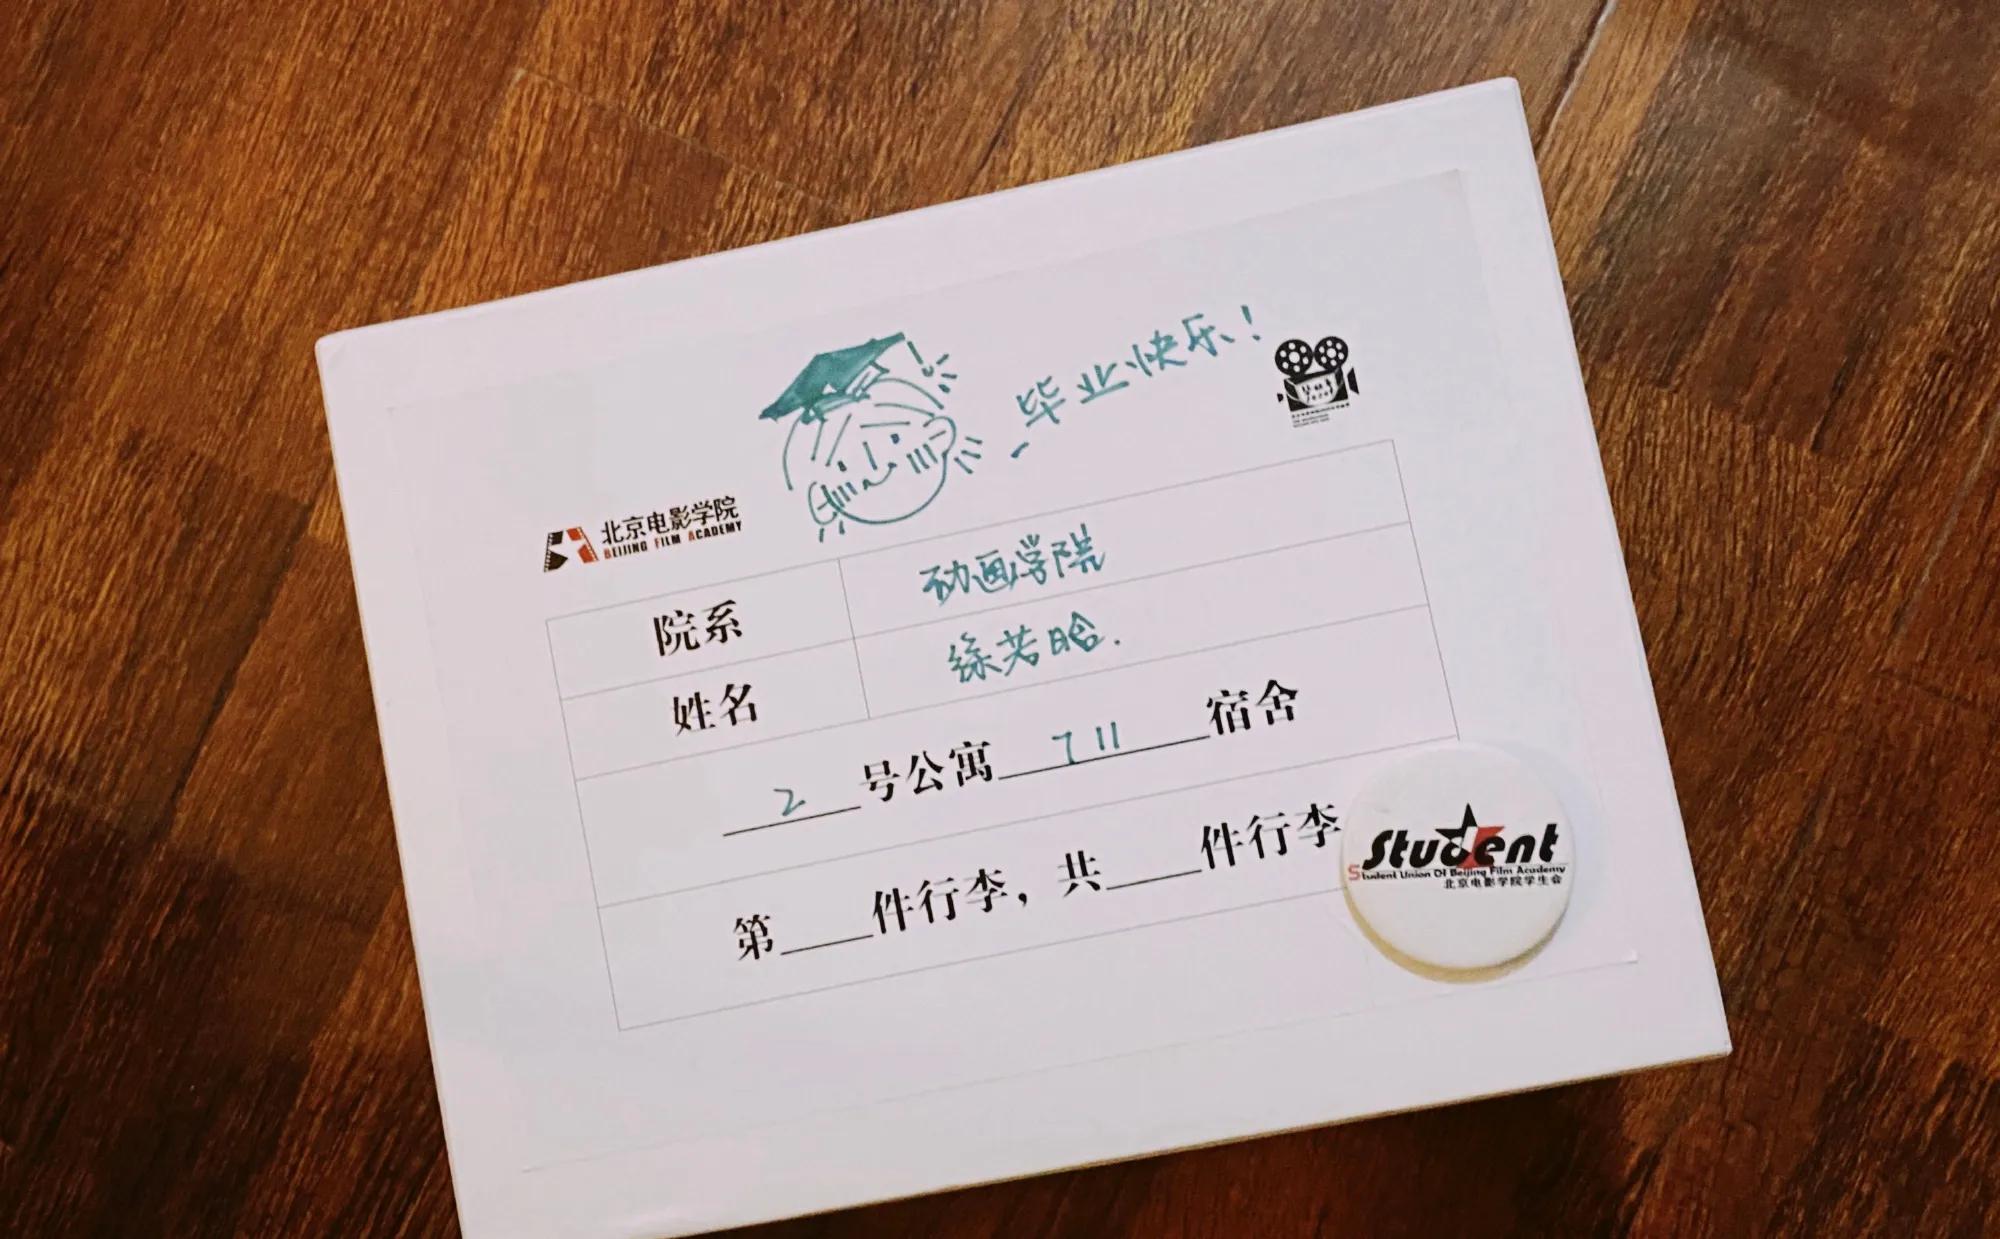 毕业快乐!
北京电影学院
BEIJING FILM ACADEMY
院系 动画学院
姓名 徐若晗.
2号公寓711宿舍
第____件行李，共____件行李
Student
Student Union Of Beijing Film Academy
北京电影学院学生会